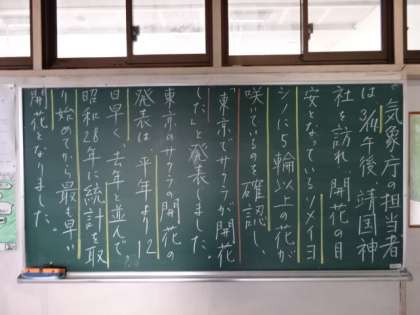 気象庁の担当者
は3/14午後靖国神
社を訪れ、開花の目
安となっているソメイヨ
シノに5輪以上の花が
咲いているのを確認し
「東京でサクラが開花
した」と発表しました。
東京のサクラの開花の
発表は、平年より12
日早く、去年と並んで
昭和28年に統計を取
り始めてから最も早い
開花となりました。